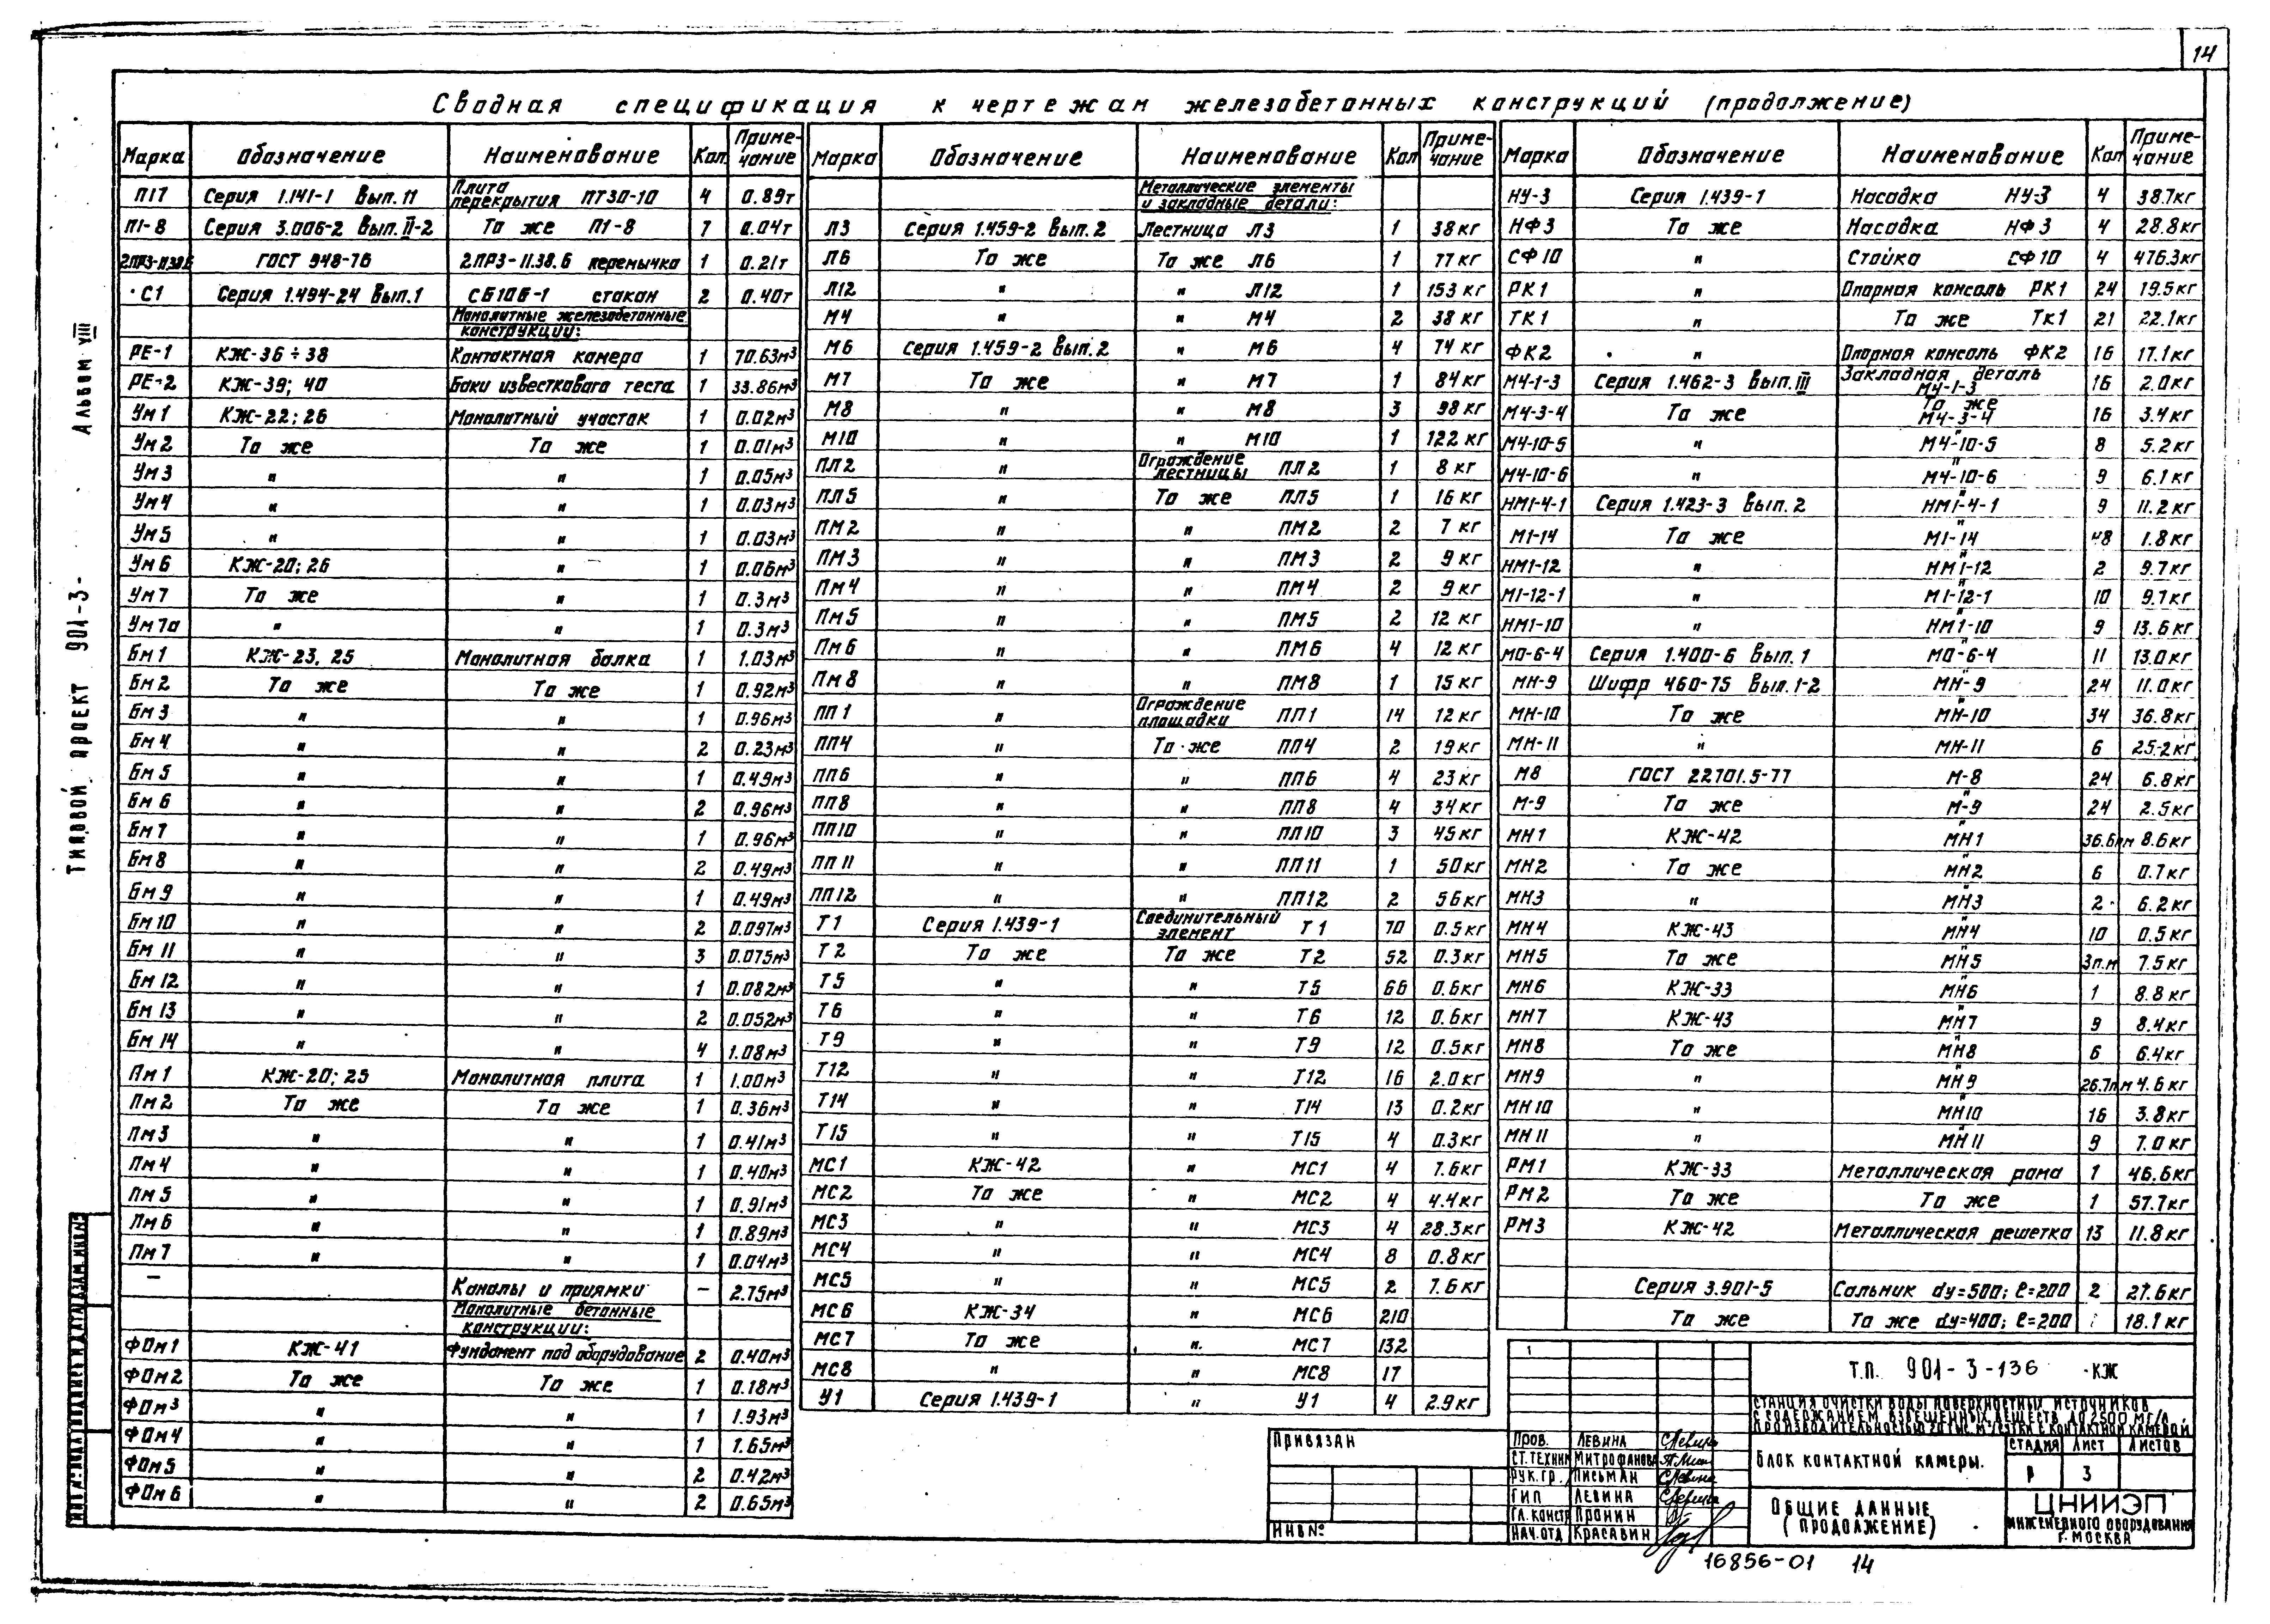 14
Сводная спецификация к чертежам железобетонных конструкций (продолжение)
Марка Обозначение Наименование Кол. Приме-чание
П17 Серия 1.141-1 Вып. 11 Плита перекрытия ПТ30-10 4 0.89т
П1-8 Серия 3.006-2 Вып. II-2 То же П1-8 7 0.04т
2ПР3-11.38.6 ГОСТ 948-76 2ПР3-11.38.6 перемычка 1 0.21т
С1 Серия 1.494-24 Вып. 1 СБ10Б-1 стакан 2 0.40т
Монолитные железобетонные конструкции:
РЕ-1 КЖ-36÷38 Контактная камера 1 70.63м³
РЕ-2 КЖ-39; 40 Баки известкового теста 1 33.86м³
Ум1 КЖ-22; 26 Монолитный участок 1 0.02м³
Ум2 То же То же 1 0.01м³
Ум3 " " 1 0.05м³
Ум4 " " 1 0.03м³
Ум5 " " 1 0.03м³
Ум6 КЖ-20; 26 " 1 0.06м³
Ум7 То же " 1 0.3м³
Ум7а " " 1 0.3м³
Бм1 КЖ-23, 25 Монолитная балка 1 1.03м³
Бм2 То же То же 1 0.92м³
Бм3 " " 1 0.96м³
Бм4 " " 2 0.23м³
Бм5 " " 1 0.49м³
Бм6 " " 2 0.96м³
Бм7 " " 1 0.96м³
Бм8 " " 2 0.49м³
Бм9 " " 1 0.49м³
Бм10 " " 2 0.097м³
Бм11 " " 3 0.075м³
Бм12 " " 1 0.082м³
Бм13 " " 2 0.052м³
Бм14 " " 4 1.08м³
Пм1 КЖ-20; 25 Монолитная плита 1 1.00м³
Пм2 То же То же 1 0.36м³
Пм3 " " 1 0.41м³
Пм4 " " 1 0.40м³
Пм5 " " 1 0.91м³
Пм6 " " 1 0.89м³
Пм7 " " 1 0.04м³
— Каналы и приямки — 2.75м³
Монолитные бетонные конструкции:
ФОм1 КЖ-41 Фундамент под оборудование 2 0.40м³
ФОм2 То же То же 1 0.18м³
ФОм3 " " 1 1.93м³
ФОм4 " " 1 1.65м³
ФОм5 " " 2 0.42м³
ФОм6 " " 2 0.65м³
Марка Обозначение Наименование Кол Приме-чание
Металлические элементы и закладные детали:
Л3 Серия 1.459-2 Вып. 2 Лестница Л3 1 38кг
Л6 То же То же Л6 1 77кг
Л12 " " Л12 1 153кг
М4 " " М4 2 38кг
М6 Серия 1.459-2 Вып. 2 " М6 4 74кг
М7 То же " М7 1 84кг
М8 " " М8 3 98кг
М10 " " М10 1 122кг
ПЛ2 " Ограждение лестницы ПЛ2 1 8кг
ПЛ5 " То же ПЛ5 1 16кг
ПМ2 " " ПМ2 2 7кг
ПМ3 " " ПМ3 2 9кг
Пм4 " " ПМ4 2 9кг
Пм5 " " ПМ5 2 12кг
Пм6 " " ПМ6 4 12кг
Пм8 " " ПМ8 1 15кг
ПП1 " Ограждение площадки ПП1 14 12кг
ПП4 " То же ПП4 2 19кг
ПП6 " " ПП6 4 23кг
ПП8 " " ПП8 4 34кг
ПП10 " " ПП10 3 45кг
ПП11 " " ПП11 1 50кг
ПП12 " " ПП12 2 56кг
Т1 Серия 1.439-1 Соединительный элемент Т1 70 0.5кг
Т2 То же То же Т2 52 0.3кг
Т5 " " Т5 66 0.6кг
Т6 " " Т6 12 0.6кг
Т9 " " Т9 12 0.5кг
Т12 " " Т12 16 2.0кг
Т14 " " Т14 13 0.2кг
Т15 " " Т15 4 0.3кг
МС1 КЖ-42 " МС1 4 7.6кг
МС2 То же " МС2 4 4.4кг
МС3 " " МС3 4 28.3кг
МС4 " " МС4 8 0.8кг
МС5 " " МС5 2 7.6кг
МС6 КЖ-34 " МС6 210
МС7 То же " МС7 132
МС8 " " МС8 17
У1 Серия 1.439-1 " У1 4 2.9кг
Марка Обозначение Наименование Кол Приме-чание
НУ-3 Серия 1.439-1 Насадка НУ-3 4 38.7кг
НФ3 То же Насадка НФ3 4 28.8кг
СФ10 " Стойка СФ10 4 476.3кг
РК1 " Опорная консоль РК1 24 19.5кг
ТК1 " То же ТК1 21 22.1кг
ФК2 " Опорная консоль ФК2 16 17.1кг
М4-1-3 Серия 1.462-3 Вып. III Закладная деталь М4-1-3 16 2.0кг
М4-3-4 То же То же М4-3-4 16 3.4кг
М4-10-5 " " М4-10-5 8 5.2кг
М4-10-6 " " М4-10-6 9 6.1кг
НМ1-4-1 Серия 1.423-3 Вып. 2 " НМ1-4-1 9 11.2кг
М1-14 То же " М1-14 48 1.8кг
НМ1-12 " " НМ1-12 2 9.7кг
М1-12-1 " " М1-12-1 10 9.7кг
НМ1-10 " " НМ1-10 9 13.6кг
МО-6-4 Серия 1.400-6 Вып. 1 " МО-6-4 11 13.0кг
МН-9 Шифр 460-75 Вып. 1-2 " МН-9 24 11.0кг
МН-10 То же " МН-10 34 36.8кг
МН-11 " МН-11 6 25.2кг
М8 ГОСТ 22701.5-77 М-8 24 6.8кг
М-9 То же " М-9 24 2.5кг
МН1 КЖ-42 " МН1 36.6пм 8.6кг
МН2 То же " МН2 6 0.7кг
МН3 " " МН3 2 6.2кг
МН4 КЖ-43 " МН4 10 0.5кг
МН5 То же " МН5 3п.м 7.5кг
МН6 КЖ-33 " МН6 1 8.8кг
МН7 КЖ-43 " МН7 9 8.4кг
МН8 То же " МН8 6 6.4кг
МН9 " " МН9 26.7пм 4.6кг
МН10 " " МН10 16 3.8кг
МН11 " " МН11 9 7.0кг
РМ1 КЖ-33 Металлическая рама 1 46.6кг
РМ2 То же То же 1 57.7кг
РМ3 КЖ-42 Металлическая решетка 13 11.8кг
Серия 3.901-5 Сальник dу=500; ℓ=200 2 27.6кг
То же То же dу=400; ℓ=200 18.1кг
Типовой проект 901-3- Альбом VIII
Привязан
ИНВ№
1
Пров. Левина
Ст.техник Митрофанова
Рук.гр. Письман
ГИП Левина
Гл.констр Пронин
Нач.отд Красавин
Т.П. 901-3-136 КЖ
Станция очистки воды поверхностных источников
с содержанием взвешенных веществ до 2500 мг/л
производительностью 20 тыс. м³/сутки с контактной камерой
Блок контактной камеры.
Стадия Лист Листов
Р 3
Общие данные
(продолжение)
ЦНИИЭП
инженерного оборудования
г. Москва
16856-01 14